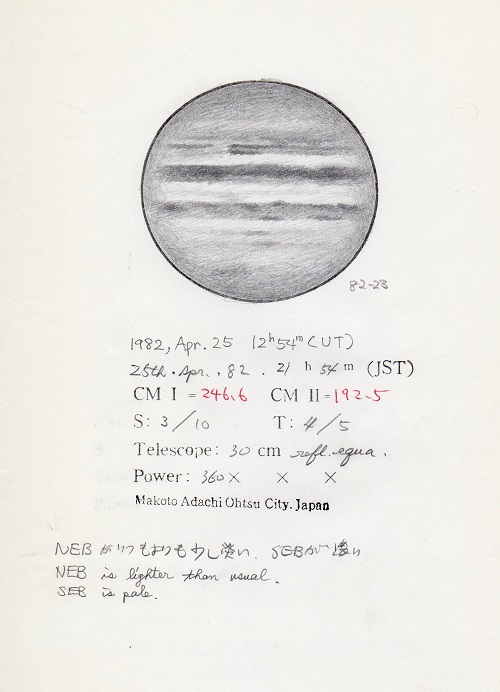 82-23
1982, Apr. 25 12h54m (UT)
25th. Apr., 82. 21 h 54 m (JST)
CM I = 246.6 CM II = 192.5
S: 3/10 T: 4/5
Telescope: 30 cm refl. equa.
Power: 360× × ×
Makoto Adachi Ohtsu City, Japan
NEBがいつもよりも少し淡い. SEBが淡い
NEB is lighter than usual.
SEB is pale.